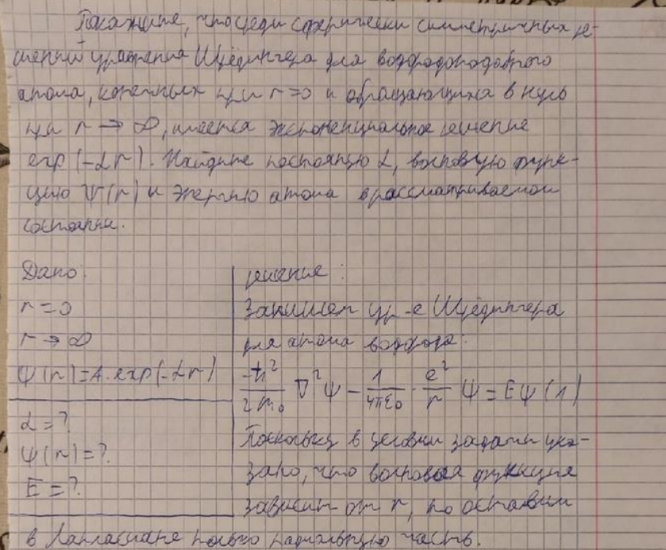 Покажите, что среди сферически симметричных ре-
шений уравнения Шрёдингера для водородоподобного
атома, конечных при r=0 и обращающихся в нуль
при r→∞, имеется экспоненциальное решение
exp(-αr). Найдите постоянную α, волновую функ-
цию Ψ(r) и энергию атома в рассматриваемом
состоянии.
Дано:
r=0
r→∞
Ψ(r)=A·exp(-αr)
α=?
Ψ(r)=?
E=?
решение:
Запишем ур-е Шрёдингера
для атома водорода:
-ħ²/2m₀ ∇²Ψ - 1/4πε₀ · e²/r Ψ = EΨ (1)
Поскольку в условии задачи ука-
зано, что волновая функция
зависит от r, то оставим
в Лапласиане только радиальную часть.